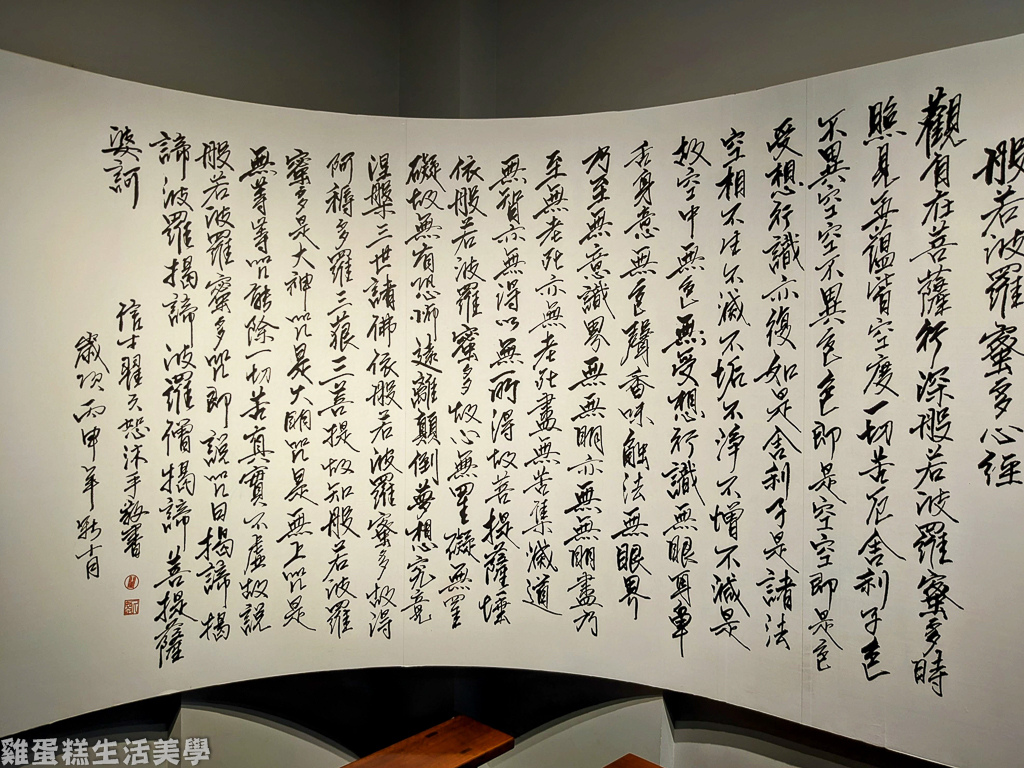 般若波羅蜜多心經
觀自在菩薩行深般若波羅蜜多時
照見五蘊皆空度一切苦厄舍利子色
不異空空不異色色即是空空即是色
受想行識亦復如是舍利子是諸法
空相不生不滅不垢不淨不憎不減是
故空中無色無受想行識無眼耳鼻
舌身意無色聲香味觸法無眼界
乃至無意識界無無明亦無無明盡乃
至無老死亦無老死盡無苦集滅道
無智亦無得以無所得故菩提薩埵
依般若波羅蜜多故心無罣礙無罣
礙故無有恐怖遠離顛倒夢想究竟
涅槃三世諸佛依般若波羅蜜多故得
阿耨多羅三藐三菩提故知般若波羅
蜜多是大神咒是大明咒是無上咒是
無等等咒能除一切苦真實不虛故說
般若波羅蜜多咒即說咒曰揭諦揭
諦波羅揭諦波羅僧揭諦菩提薩
婆訶
信士翟天恕沐手敬書
歲次丙申年
雞蛋糕生活美學